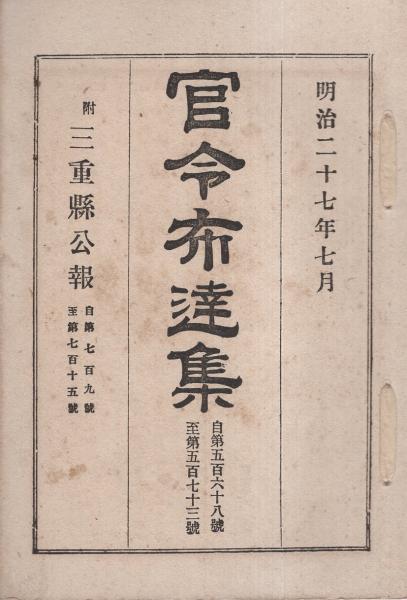 明治二十七年七月
官令布達集
自第五百六十八號
至第五百七十三號
附
三重縣公報
自第七百九號
至第七百十五號